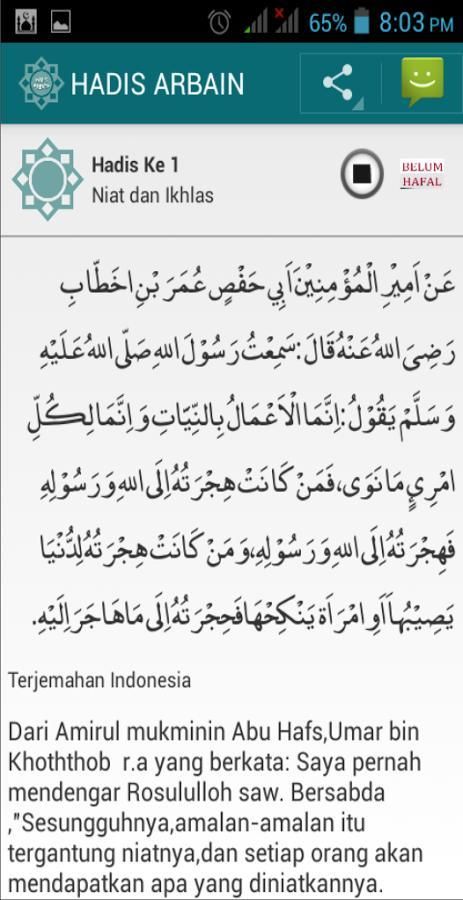 65% 8:03 PM
HADIS ARBAIN
Hadis Ke 1
Niat dan Ikhlas
BELUM
HAFAL
عَنْ اَمِيْرِ الْمُؤْمِنِيْنَ اَبِي حَفْصٍ عُمَرَ بْنِ اخَطَّابِ
رَضِيَ اللهُ عَنْهُ قَالَ: سَمِعْتُ رَسُوْلَ اللهِ صَلَّى اللهُ عَلَيْهِ
وَسَلَّمْ يَقُوْلُ: اِنَّمَا الْاَعْمَالُ بِالنِّيَّاتِ وَ اِنَّمَا لِكُلِّ
امْرِئٍ مَا نَوَى، فَمَنْ كَانَتْ هِجْرَتُهُ اِلَى اللهِ وَرَسُوْلِهِ
فَهِجْرَتُهُ اِلَى اللهِ وَرَسُوْلِهِ، وَمَنْ كَانَتْ هِجْرَتُهُ لِدُنْيَا
يَصِيْبُهَا اَوِ امْرَاَةٍ يَنْكِحُهَا فَحِجْرَتُهُ اِلَى مَا هَاجَرَ اِلَيْهِ.
Terjemahan Indonesia
Dari Amirul mukminin Abu Hafs,Umar bin
Khoththob r.a yang berkata: Saya pernah
mendengar Rosululloh saw. Bersabda
,"Sesungguhnya,amalan-amalan itu
tergantung niatnya,dan setiap orang akan
mendapatkan apa yang diniatkannya.